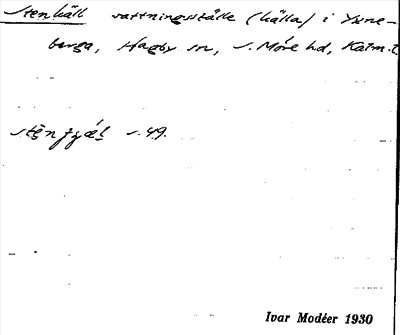 Stenkäll vattningsställe (källa) i Ysne-
berga, Hagby sn, S. Möre hd, Kalm. l
s. 49.
Ivar Modéer 1930